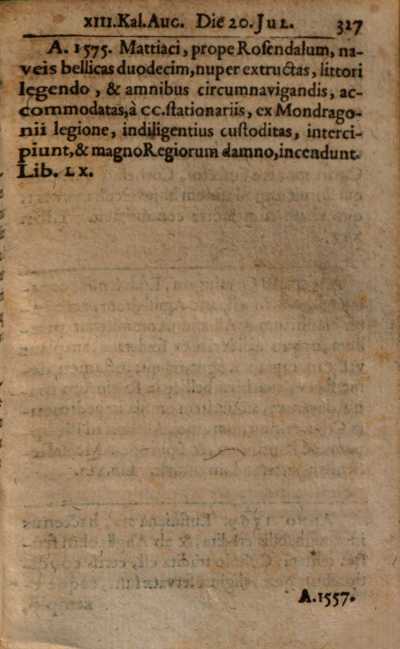 XIII. Kal. Aug. Die 20. Jul. 327
A. 1575. Mattiaci, prope Rosendalum, na-
veis bellicas duodecim, nuper extructas, littori
legendo, & amnibus circumnavigandis, ac-
commodatas, à CC. stationariis, ex Mondrago-
nii legione, indiligentius custoditas, interci-
piunt, & magno Regiorum damno, incendunt.
Lib. LX.
A. 1557.